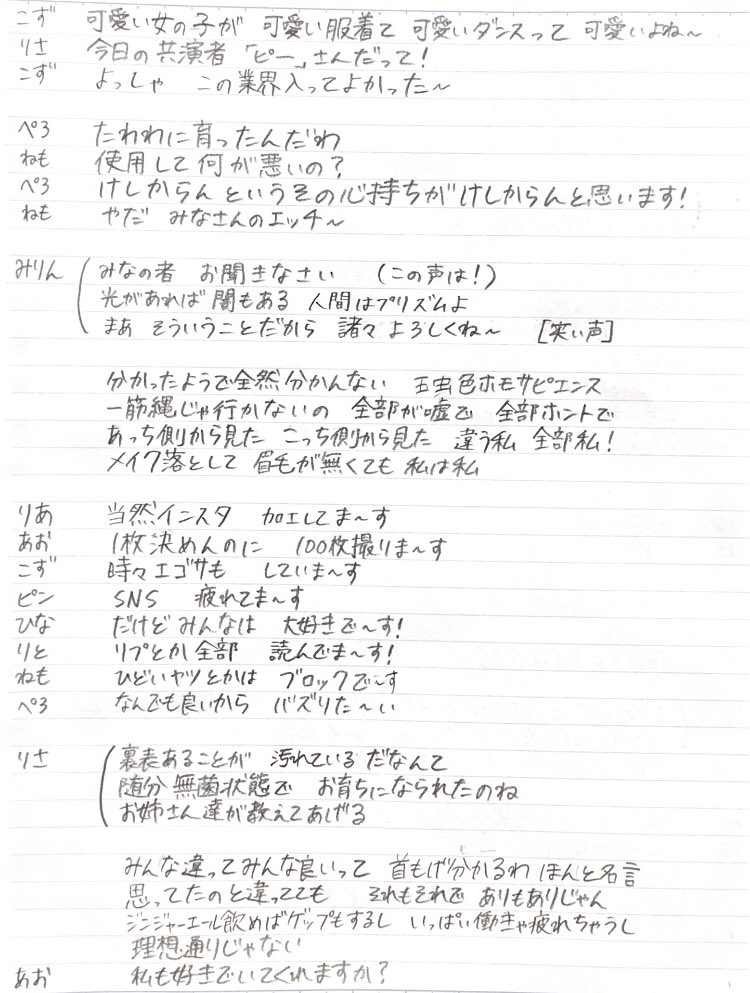 こず 可愛い女の子が 可愛い服着て 可愛いダンスって 可愛いよね〜
りさ 今日の共演者「ピー」さんだって!
こず よっしゃ この業界入ってよかった〜
ぺろ たわわに育ったんだわ
ねも 使用して何が悪いの?
ぺろ けしからんというその心持ちがけしからんと思います!
ねも やだ みなさんのエッチ〜
みりん みなの者 お聞きなさい (この声は!)
光があれば闇もある 人間はプリズムよ
まあ そういうことだから 諸々よろしくね〜 [笑い声]
分かったようで全然分かんない 玉虫色ホモサピエンス
一筋縄じゃ行かないの 全部が嘘で 全部ホントで
あっち側から見た こっち側から見た 違う私 全部私!
メイク落として 眉毛が無くても 私は私
りあ 当然インスタ 加工してま〜す
あお 1枚決めんのに 100枚撮りま〜す
こず 時々エゴサも していま〜す
ピン SNS 疲れてま〜す
ひな だけどみんなは 大好きで〜す!
りと リプとか全部 読んでま〜す!
ねも ひどいヤツとかは ブロックで〜す
ぺろ なんでも良いから バズりた〜い
りさ 裏表あることが 汚れているだなんて
随分無菌状態で お育ちになられたのね
お姉さん達が教えてあげる
みんな違ってみんな良いって 首もげ分かるわ ほんと名言
思ってたのと違ってても それもそれで ありもありじゃん
ジンジャーエール飲めばゲップもするし いっぱい働きゃ疲れちゃうし
理想通りじゃない
あお 私も好きでいてくれますか?